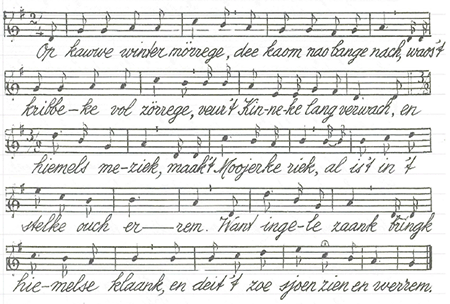 Op kauwe winter mörrege, dee kaom nao lange nach, waos 't
kribbe-ke vol zörrege, veur't Kin-ne-ke lang verwach, en
hiemels me-ziek, maak't Moojerke riek, al is't in 't
stelke ouch er-rem. Want inge-le zaank bringk
hie-melse klaank, en deit 't zoe sjoen zien en werrem.